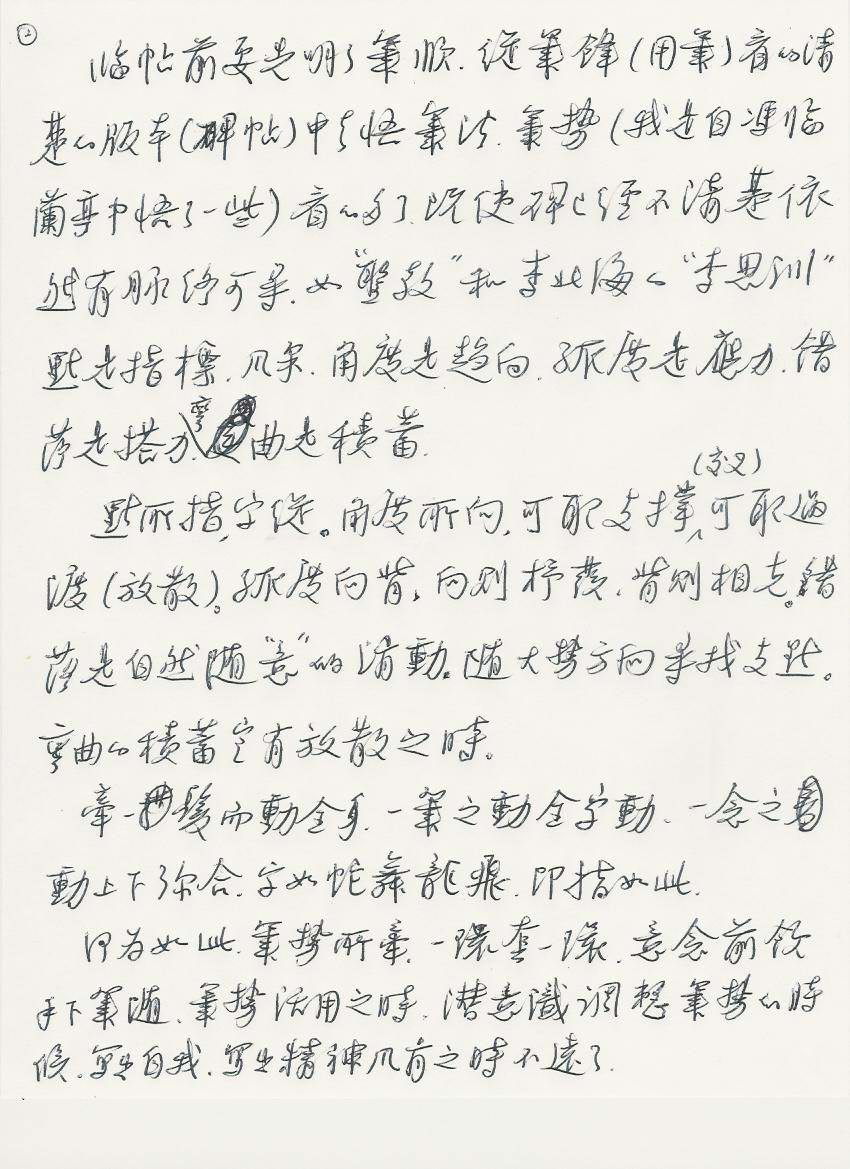 ②
临帖前要先明了筆順.從筆鋒(用筆)看的清
楚的版本(碑帖)中去悟筆法.筆勢(我是自馮临
蘭亭中悟了一些)看的多了.既使碑已經不清楚依
然有脉络可尋.如"聖教"和李北海的"李思训"
點是指標.風采.角度是趋向.弧度是應力.错
落是搭力.彎曲是積蓄.
點所指,字從。角度所向,可取支撑,(交叉)可取過
渡(放散)。弧度向背,向则抒發.背则相克。错
落是自然随"意"的滑動。随大勢方向尋找支點。
彎曲的積蓄定有放散之時。
牽一髮而動全身.一筆之動全字動.一念之
動上下弥合.字如蛇舞龍飛.即指如此.
因为如此.筆勢所牽.一環套一環.意念前領
手下筆随.筆勢活用之時.潜意識调整筆勢的時
候.寫出自我.寫出精神風育之時不遠了.